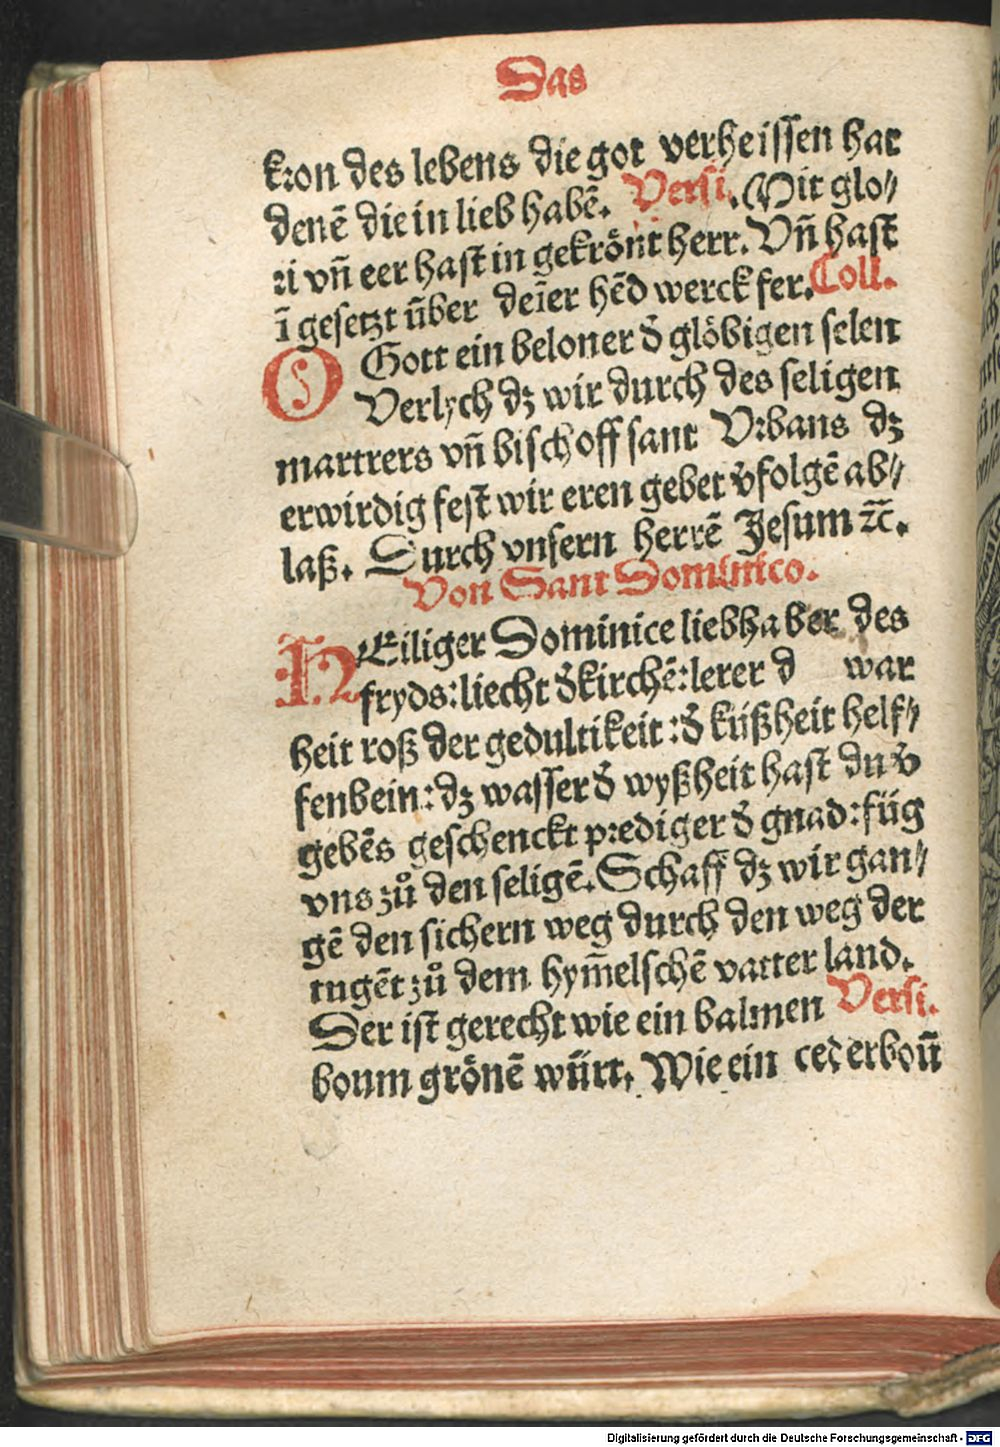 Das
kron des lebens die got verheissen hat
denē die in lieb habē. Versi. Mit glo⸗
ri vn̄ eer hast in gekrönt herr. Vn̄ hast
ī gesetzt über deīer hēd werck fer. Coll.
O Gott ein beloner d̄ glöbigen selen
Verlych dz wir durch des seligen
martrers vn̄ bischoff sant Vrbans dz
erwirdig fest wir eren gebet v̄folgē ab⸗
laß. Durch vnsern herrē Jesum ꝛc̄.
Von Sant Dominico.
HEiliger Dominice liebhaber des
fryds: liecht d̄ kirchē: lerer d war
heit roß der gedultikeit: d̄ küßheit helf⸗
fenbein: dz wasser d̄ wyßheit hast du v̄
gebēs geschenckt prediger d̄ gnad: füg
vns zů den seligē. Schaff dz wir gan⸗
gē den sichern weg durch den weg der
tugēt zů dem hym̄elschē vatter land.
Der ist gerecht wie ein balmen Versi.
boum grönē würt. Wie ein cederboū
Digitalisierung gefördert durch die Deutsche Forschungsgemeinschaft - DFG